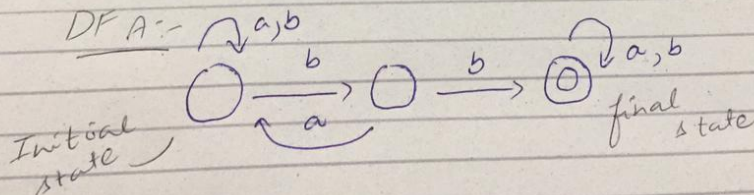 DFA:-
a,b
b
b
a,b
a
Initial
state
final
state